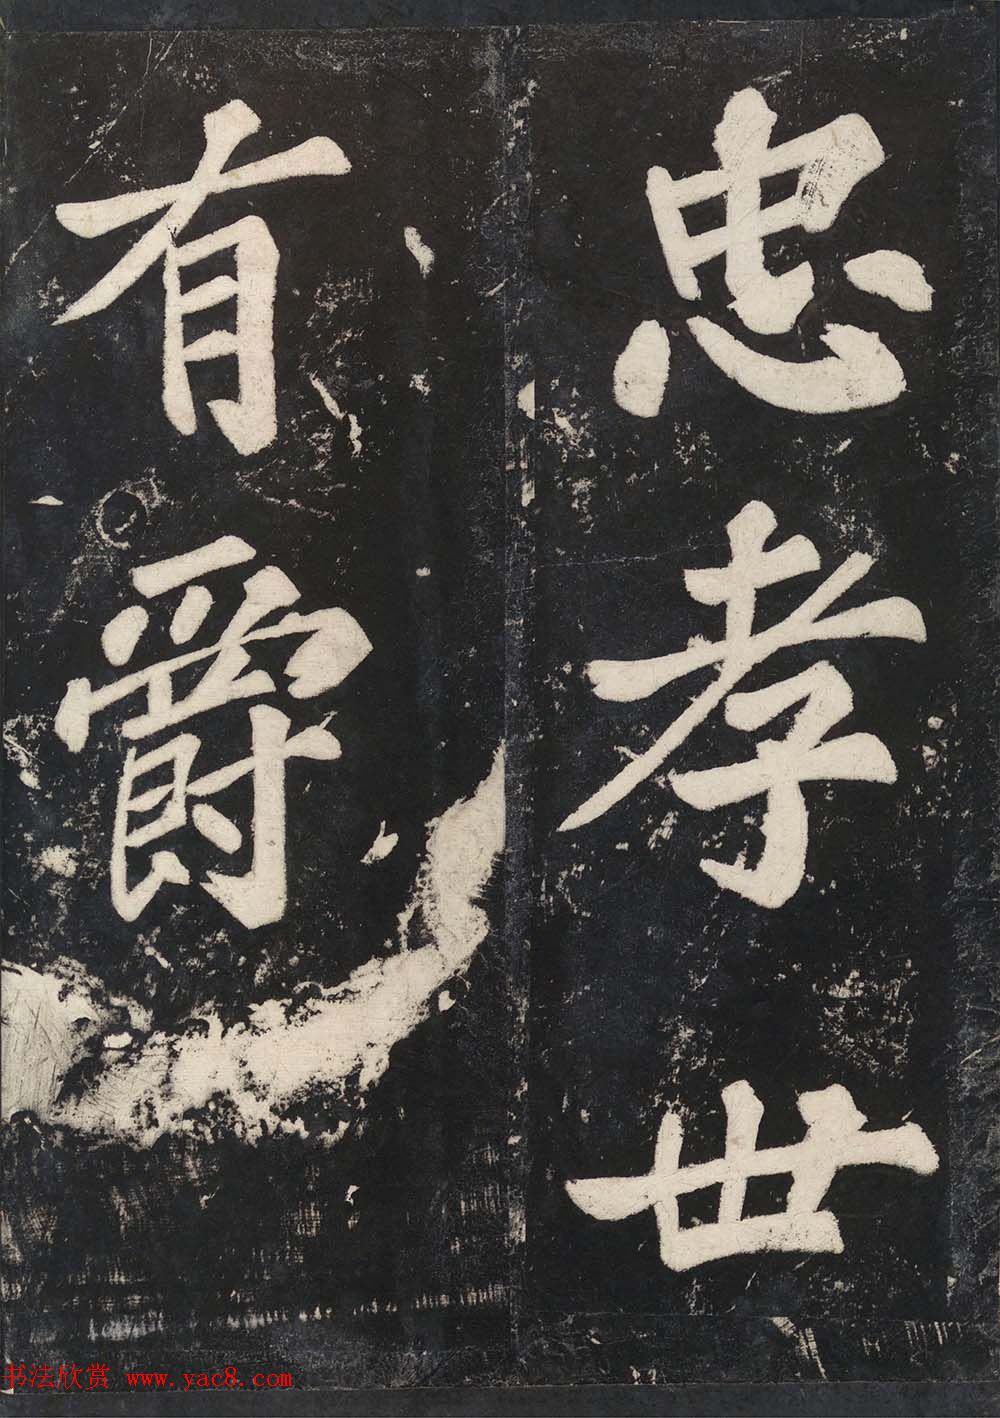 忠孝世
有爵
书法欣赏 www.yac8.com